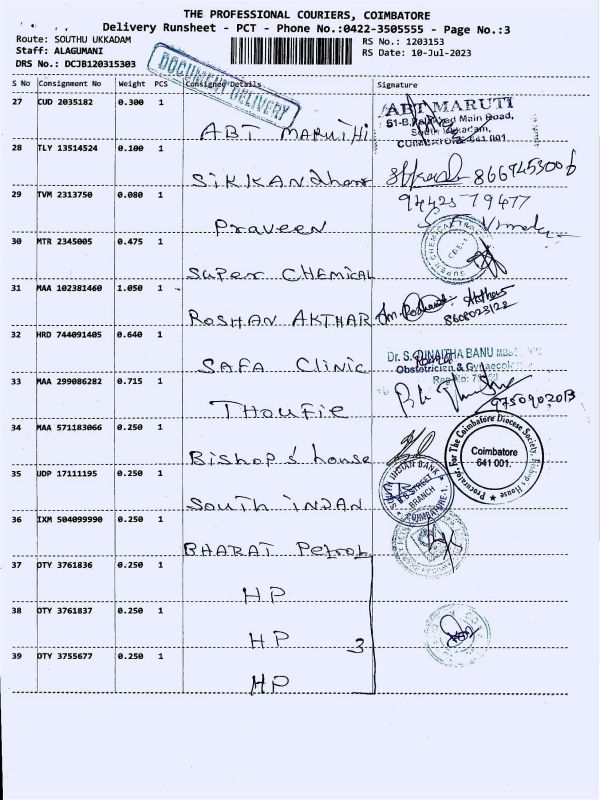 THE PROFESSIONAL COURIERS, COIMBATORE
Delivery Runsheet - PCT - Phone No.:0422-3505555 - Page No.:3
Route: SOUTHU UKKADAM
RS No.: 1203153
Staff: ALAGUMANI
RS Date: 10-Jul-2023
DRS No.: DCJB120315303
DOCUMENT DELIVERY
S No Consignment No Weight PCS Consignee Details Signature
27 CUD 2035182 0.300 1 ABT MARUTHI
ABT MARUTI
Main Road,
28 TLY 13514524 0.100 1 SiKKANdhar
8667453006
29 TVM 2313750 0.080 1 Praveen
94425 79477
30 MTR 2345005 0.475 1 SUPER CHEMICAL
31 MAA 102381460 1.050 1 ROSHAN AKTHAR
32 HRD 744091405 0.640 1 SAFA Clinic
Obstetrician &
33 MAA 299086282 0.715 1 THOUFIE
9750902013
34 MAA 571183066 0.250 1 Bishop's house
Procurator, For The Coimbatore Diocese Society, Bishop's House
Coimbatore
641 001.
35 UDP 17111195 0.250 1 SOUTH INDAN
SOUTH INDIAN BANK
BRANCH
COIMBATORE-1
36 IXM 504099990 0.250 1 BHARAT Petrol
37 OTY 3761836 0.250 1 HP
38 OTY 3761837 0.250 1 HP 3
39 OTY 3755677 0.250 1 HP